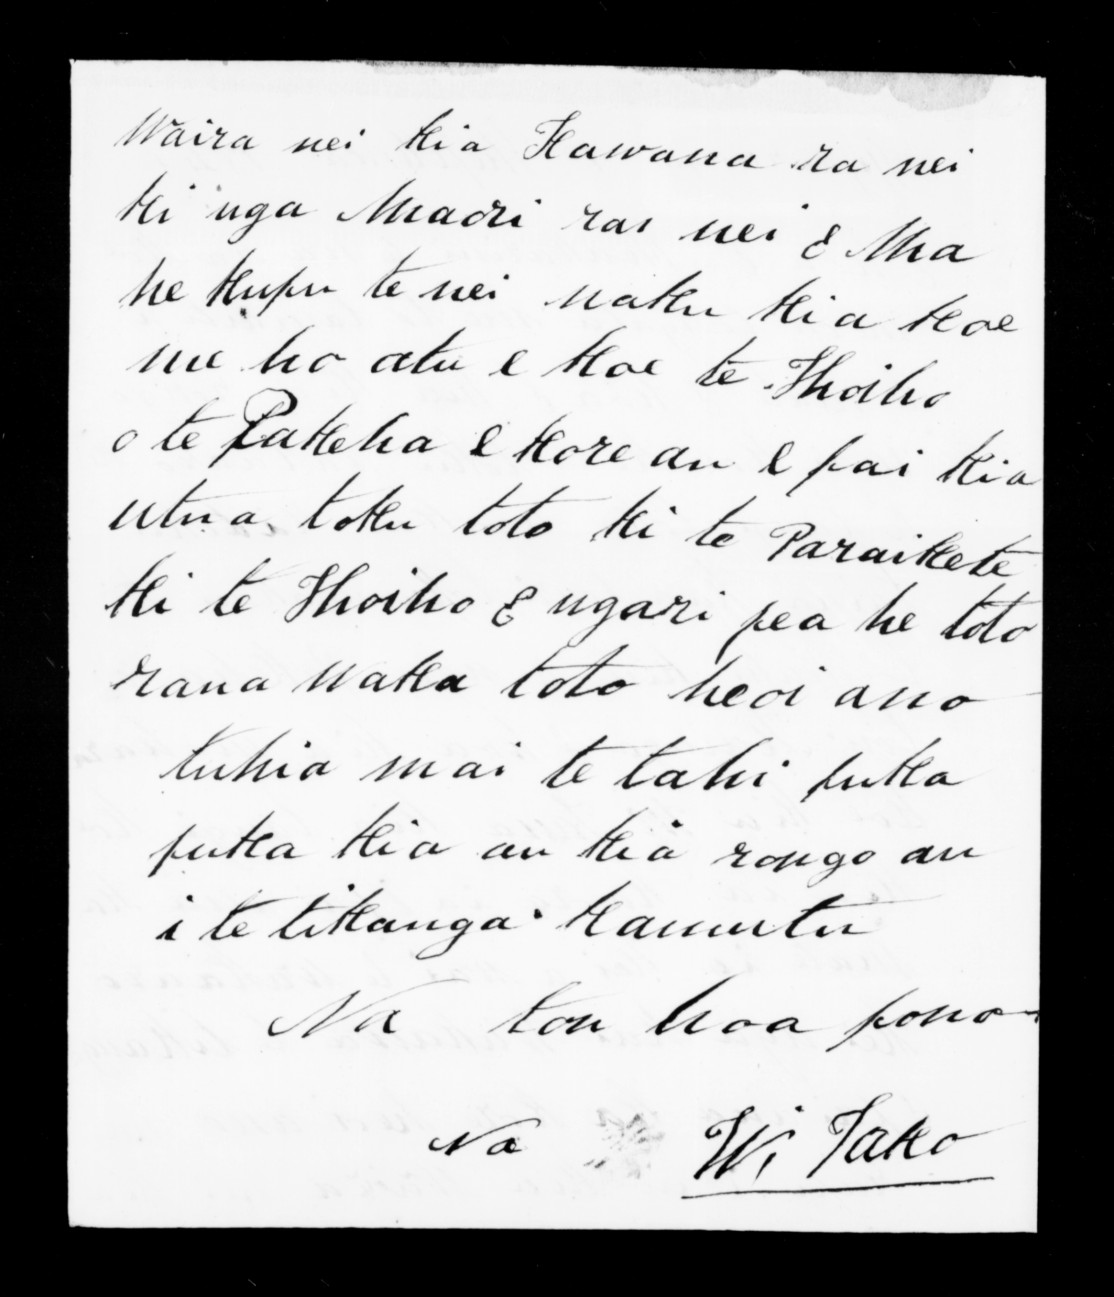 Waira nei kia Kawana ra nei
ki nga Maori rai nei E Ma
he kupu te nei naku kia koe
me ho atu e koe te Hhoiho
o te Pakeha e kore au e pai kia
utua toku toto ki te Paraikete
ki te Hhoiho E ngari pea he toto
rana waka toto heoi ano
tuhia mai te tahi puka
puka kia au kia rongo au
i te tikanga kamutu
Na tou hoa pono
Na Wi Tako